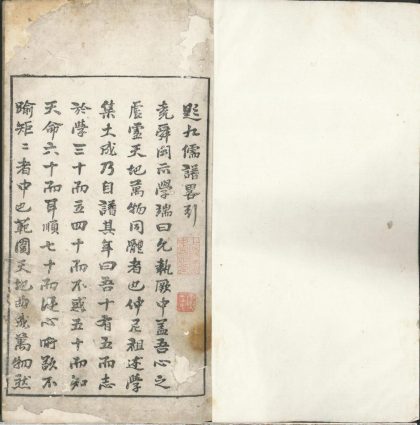 盱江儒譜畧引
堯舜開示學端曰允執厥中葢吾心之
虛靈天地萬物同體者也仲尼祖述學
集大成乃自譜其年曰吾十有五而志
於學三十而立四十而不惑五十而知
天命六十而耳順七十而從心所欲不
踰矩二者中也範圍天地曲成萬物然